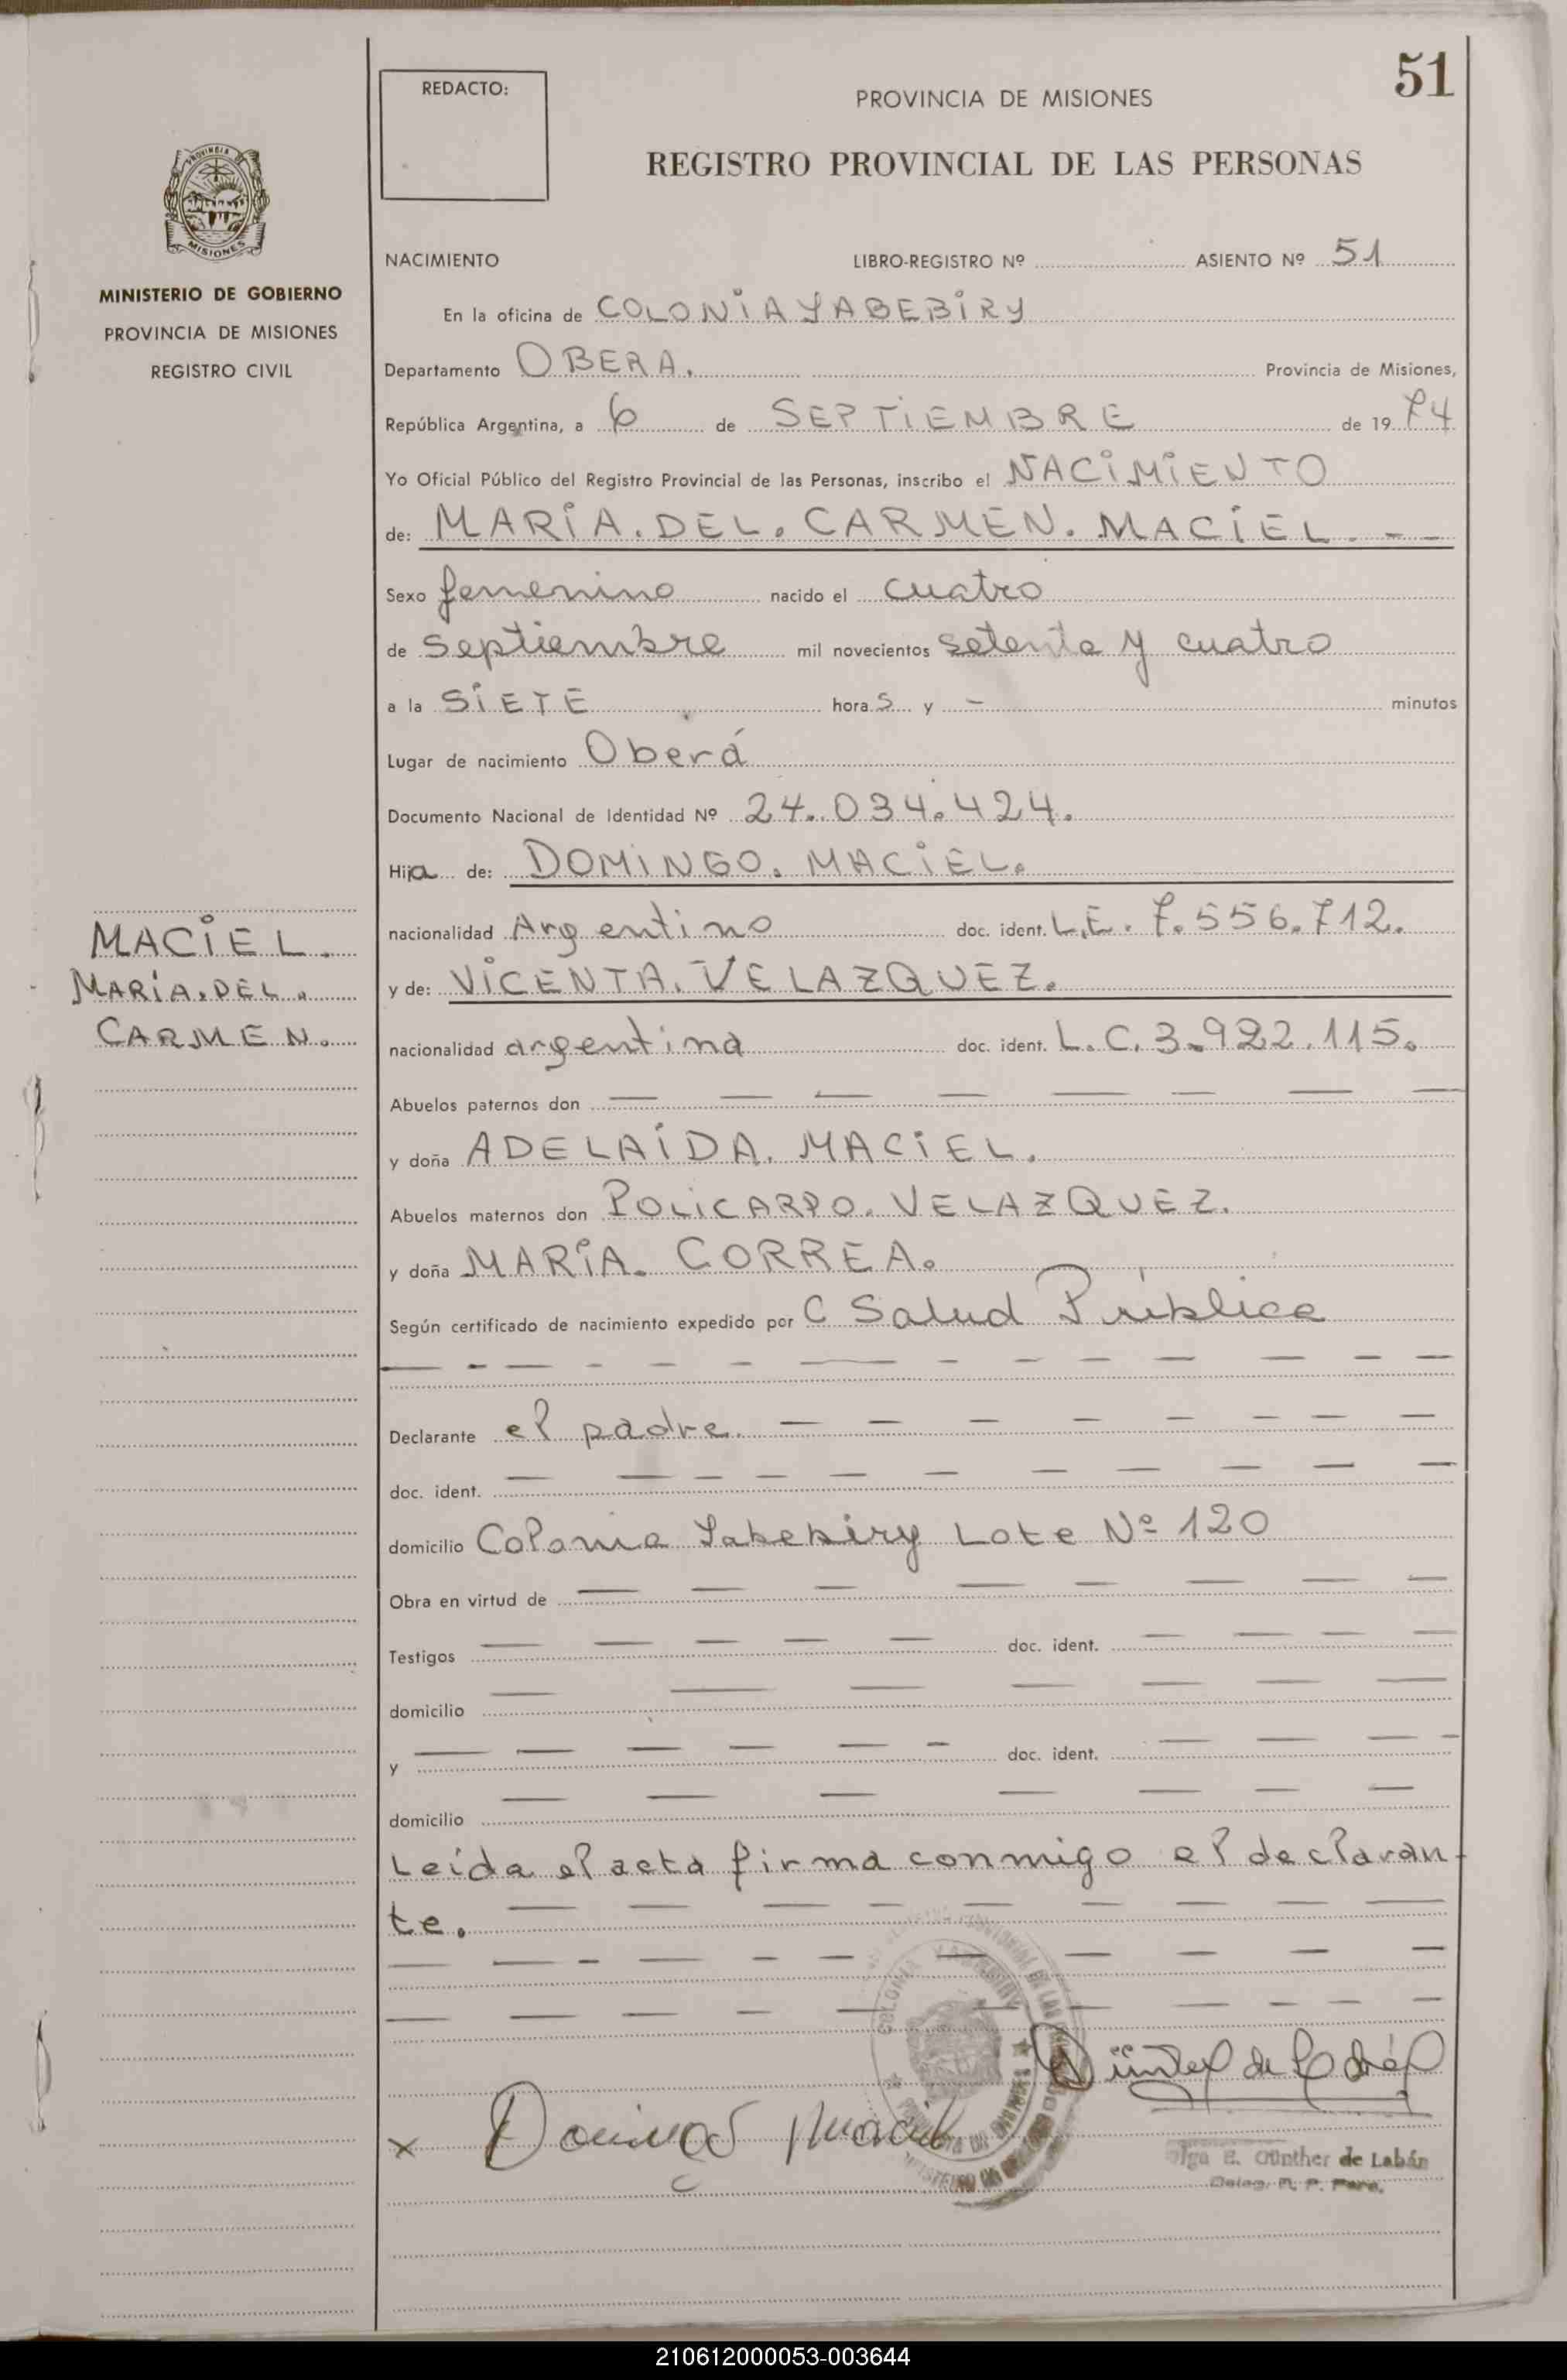 51
REDACTO:
PROVINCIA DE MISIONES
REGISTRO PROVINCIAL DE LAS PERSONAS
PROVINCIA DE
MISIONES
MINISTERIO DE GOBIERNO
PROVINCIA DE MISIONES
REGISTRO CIVIL
NACIMIENTO LIBRO-REGISTRO Nº ASIENTO Nº 51
En la oficina de COLONIA YABEBIRY
Departamento OBERA. Provincia de Misiones,
República Argentina, a 6 de SEPTIEMBRE de 19 74
Yo Oficial Público del Registro Provincial de las Personas, inscribo el NACIMIENTO
de: MARIA. DEL. CARMEN. MACIEL. - -
Sexo femenino nacido el cuatro
de septiembre mil novecientos setenta y cuatro
a la SIETE hora s y - minutos
Lugar de nacimiento Oberá
Documento Nacional de Identidad Nº 24.034.424.
Hija de: DOMINGO. MACIEL.
nacionalidad Argentino doc. ident. L.E. 7.556.712.
y de: VICENTA. VELAZQUEZ.
nacionalidad argentina doc. ident. L.C. 3.922.115.
MACIEL.
MARÍA. DEL.
CARMEN.
Abuelos paternos don — — — — — — — —
y doña ADELAIDA. MACIEL.
Abuelos maternos don POLICARPO. VELAZQUEZ.
y doña MARIA. CORREA.
Según certificado de nacimiento expedido por C Salud Pública
Declarante el padre. — — — — — — — —
doc. ident. — — — — — — — — — —
domicilio Colonia Yabebiry Lote Nº 120
Obra en virtud de — — — — — — — —
Testigos — — — — — doc. ident. — — — —
domicilio — — — — — — —
y — — — — — — doc. ident. — — — —
domicilio — — — — — — —
Leída el acta firma conmigo el declaran-
te. — — — — — — — — —
COLONIA YABEBIRY
x Domingo Maciel
Günther de Labán
Deleg. R. P. Pers.
210612000053-003644